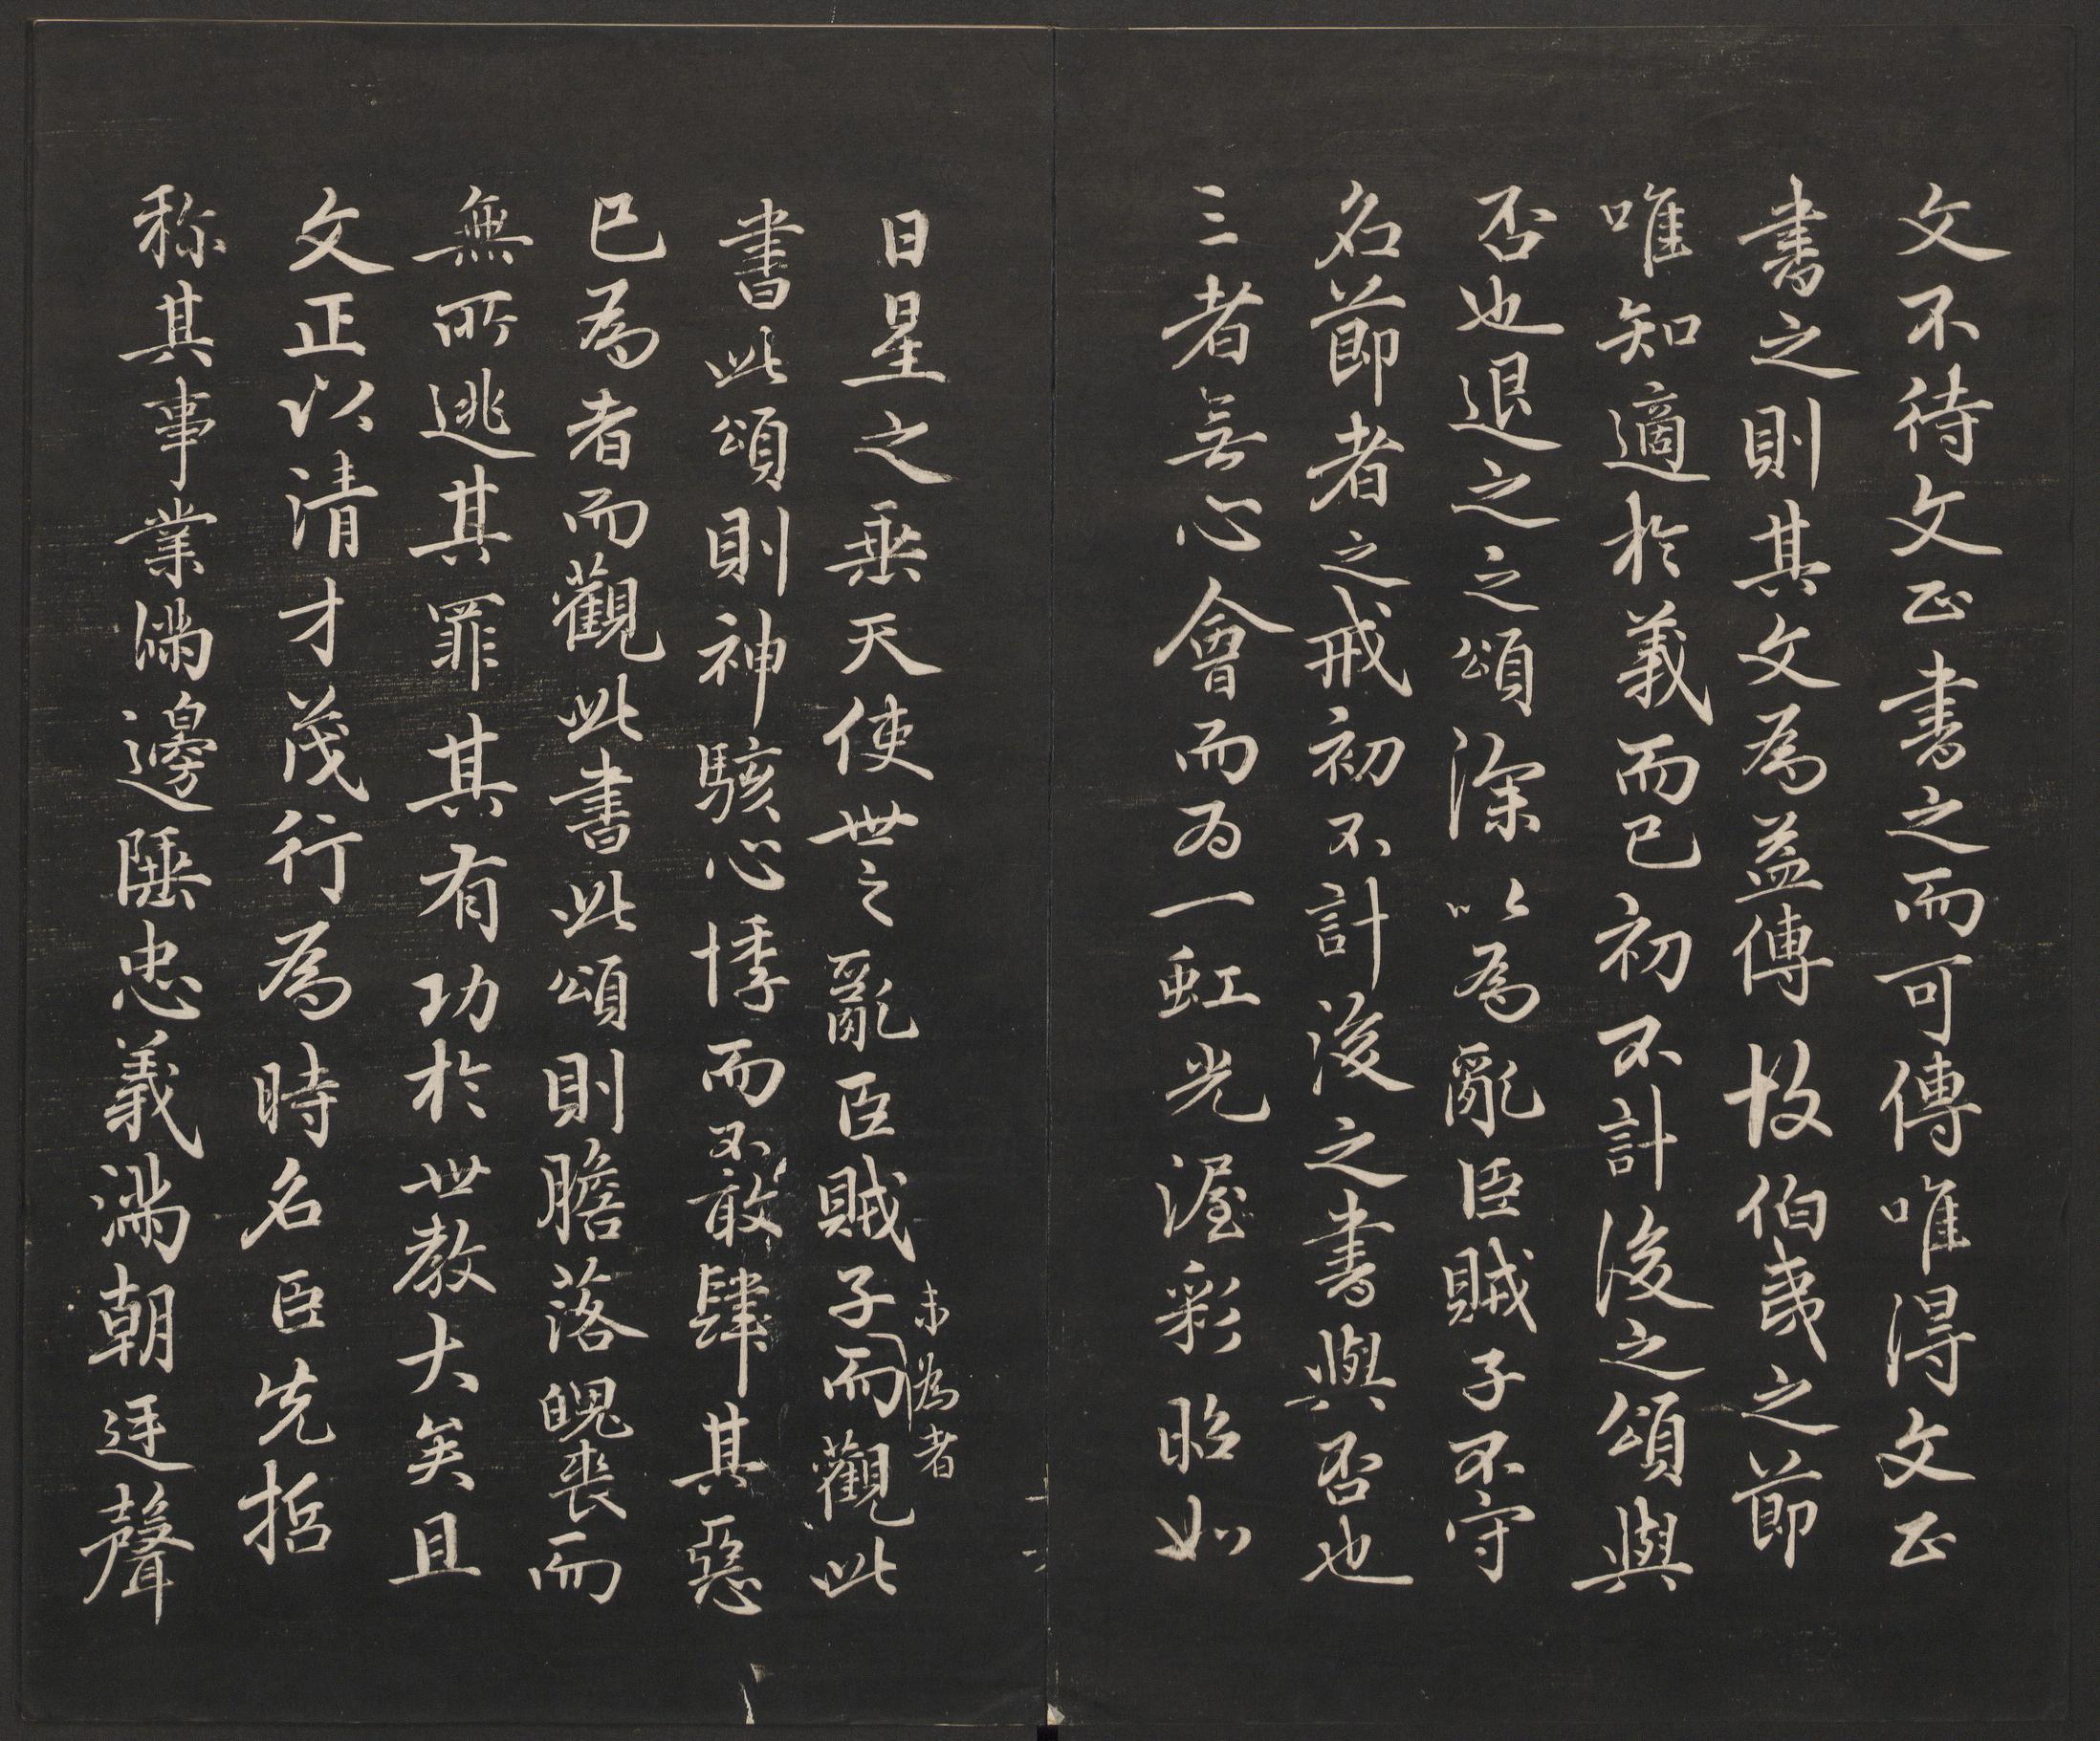 文不待文正書之而可傳唯得文正
書之則其文為益傳故伯夷之節
唯知適於義而已初不計後之頌與
否也退之之頌深以為亂臣賊子不守
名節者之戒初不計後之書與否也
三者無心會而為一虹光渥彩昭如
日星之垂天使世之亂臣賊子而觀此
未為者
書此頌則神駭心悸而不敢肆其惡
已為者而觀此書此頌則膽落魄喪而
無所逃其罪其有功於世教大矣且
文正以清才茂行為時名臣先哲
称其事業滿邊陲忠義滿朝廷聲